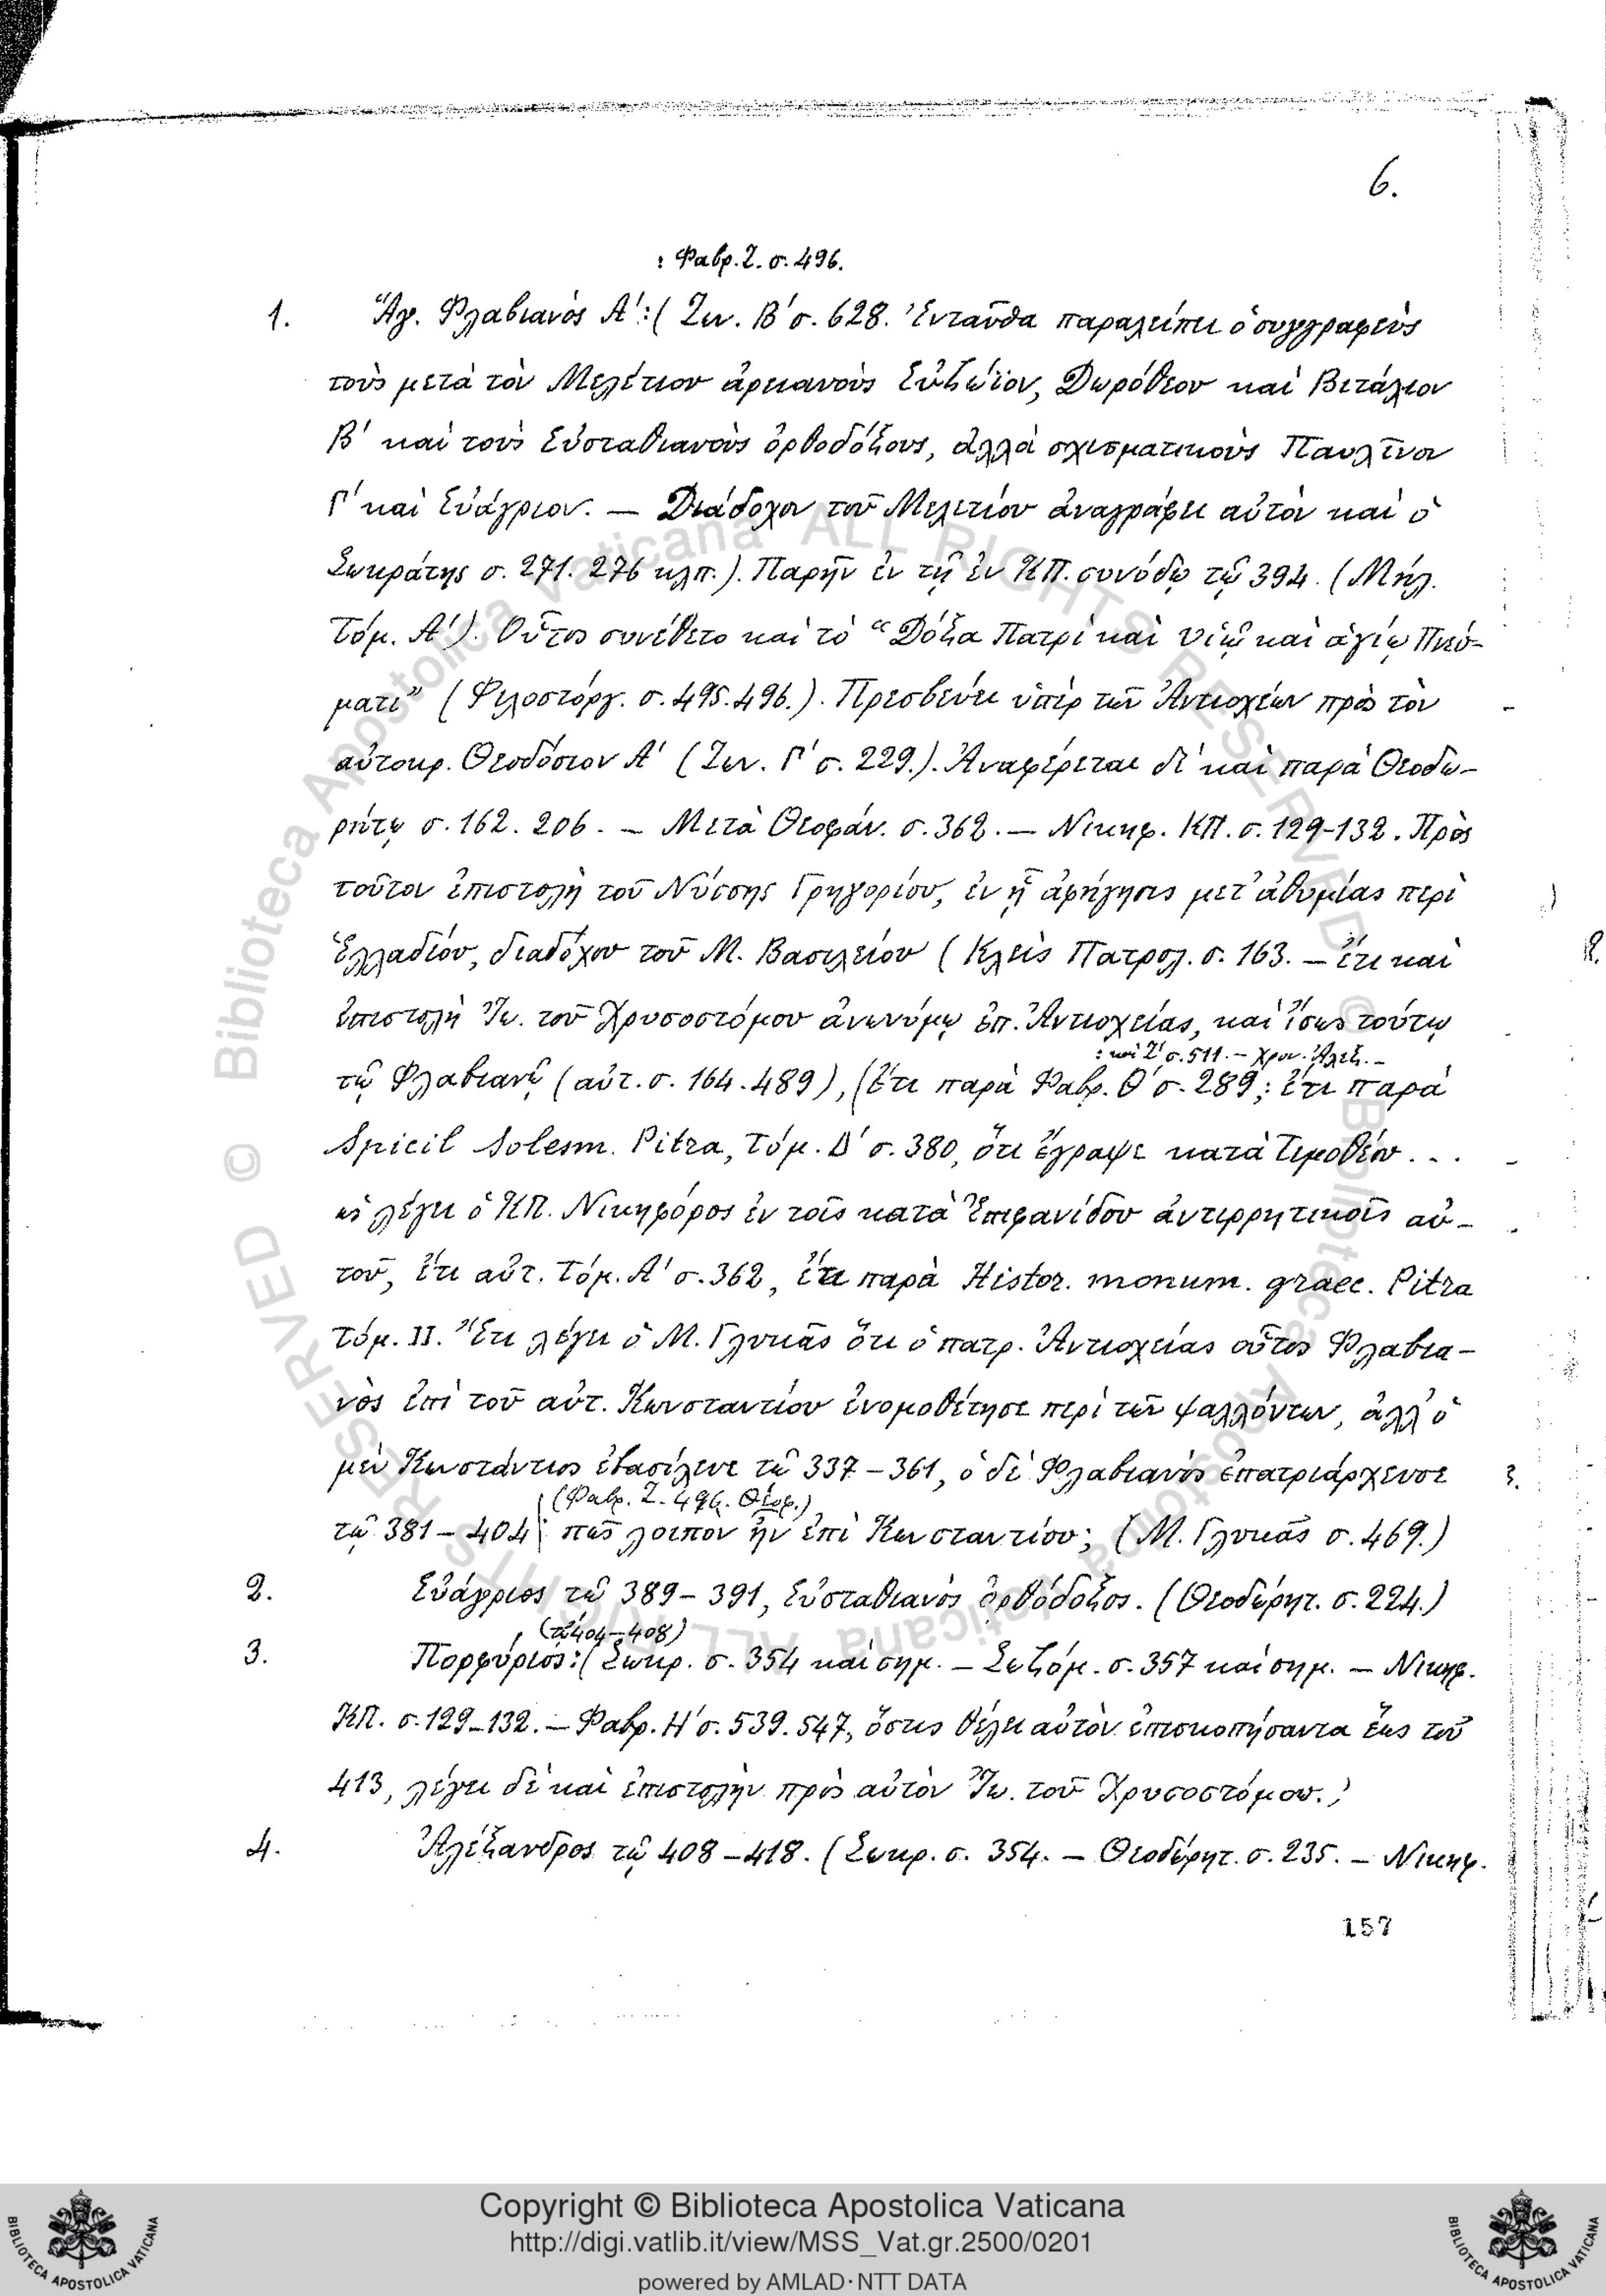 6.
: Φαβρ. Ζ. σ. 496.
1. Ἅγ. Φλαβιανὸς Α΄: (Ζων. Β΄ σ. 628. Ἐνταῦθα παραλείπει ὁ συγγραφεὺς
τοὺς μετὰ τὸν Μελέτιον ἀρειανοὺς Εὐζώϊον, Δωρόθεον καὶ Βιτάλιον
Β΄ καὶ τοὺς Εὐσταθιανοὺς ὀρθοδόξους, ἀλλὰ σχισματικοὺς Παυλῖνον
Γ΄ καὶ Εὐάγριον. — Διάδοχον τοῦ Μελετίου ἀναγράφει αὐτὸν καὶ ὁ
Σωκράτης σ. 271. 276 κλπ.). Παρῆν ἐν τῇ ἐν ΚΠ. συνόδῳ τῷ 394. (Μήλ.
Τόμ. Α΄). Οὗτος συνέθετο καὶ τὸ “Δόξα Πατρὶ καὶ υἱῷ καὶ ἁγίῳ Πνεύ-
ματι” (Φιλοστόργ. σ. 495. 496.). Πρεσβεύει ὑπὲρ τῶν Ἀντιοχέων πρὸς τὸν
αὐτοκρ. Θεοδόσιον Α΄ (Ζων. Γ΄ σ. 229.). Ἀναφέρεται δὲ καὶ παρὰ Θεοδω-
ρήτῳ σ. 162. 206. — Μετὰ Θεοφάν. σ. 362. — Νικηφ. ΚΠ. σ. 129-132. Πρὸς
τοῦτον ἐπιστολὴ τοῦ Νύσσης Γρηγορίου, ἐν ᾗ ἀφήγησις μετ' ἀθυμίας περὶ
Ἑλλαδίου, διαδόχου τοῦ Μ. Βασιλείου (Κλεὶς Πατρολ. σ. 163. — ἔτι καὶ
ἐπιστολὴ Ἰω. τοῦ Χρυσοστόμου ἀνωνύμῳ ἐπ. Ἀντιοχείας, καὶ ἴσως τούτῳ
: καὶ Ζ΄ σ. 511. — Χρον. Ἀλεξ. —
τῷ Φλαβιανῷ (αὐτ. σ. 164. 489), (ἔτι παρὰ Φαβρ. Θ΄ σ. 289; ἔτι παρὰ
Spicil Solesm. Pitra, Τόμ. Δ΄ σ. 380, ὅτι ἔγραψε κατὰ Τιμοθέου . . .
ὡς λέγει ὁ ΚΠ. Νικηφόρος ἐν τοῖς κατὰ Ἐπιφανίδου ἀντιρρητικοῖς αὐ-
τοῦ, ἔτι αὐτ. Τόμ. Α΄ σ. 362, ἔτι παρὰ Histor. monum. graec. Pitra
Τόμ. II. Ἔτι λέγει ὁ Μ. Γλυκᾶς ὅτι ὁ πατρ. Ἀντιοχείας οὗτος Φλαβια-
νὸς ἐπὶ τοῦ αὐτ. Κωνσταντίου ἐνομοθέτησε περὶ τῶν ψαλλόντων, ἀλλ' ὁ
μὲν Κωνστάντιος ἐβασίλευε τῷ 337 – 361, ὁ δὲ Φλαβιανὸς ἐπατριάρχευσε
(Φαβρ. Ζ. 496. Θεοφ.)
τῷ 381 – 404 πῶς λοιπὸν ἦν ἐπὶ Κωνσταντίου; (Μ. Γλυκᾶς σ. 469.)
2. Εὐάγριος τῷ 389 – 391, Εὐσταθιανὸς ὀρθόδοξος. (Θεοδώρητ. σ. 224.)
(τῷ 404–408)
3. Πορφύριος: (Σωκρ. σ. 354 καὶ σημ. — Σωζόμ. σ. 357 καὶ σημ. — Νικηφ.
ΚΠ. σ. 129–132. — Φαβρ. Η΄ σ. 539. 547, ὅστις θέλει αὐτὸν ἐπισκοπήσαντα ἕως τοῦ
413, λέγει δὲ καὶ ἐπιστολὴν πρὸς αὐτὸν Ἰω. τοῦ Χρυσοστόμου.)
4. Ἀλέξανδρος τῷ 408 – 418. (Σωκρ. σ. 354. — Θεοδώρητ. σ. 235. — Νικηφ.
157
© Biblioteca Apostolica Vaticana ALL RIGHTS RESERVED
Copyright © Biblioteca Apostolica Vaticana
http://digi.vatlib.it/view/MSS_Vat.gr.2500/0201
powered by AMLAD·NTT DATA
BIBLIOTECA APOSTOLICA VATICANA
BIBLIOTECA APOSTOLICA VATICANA